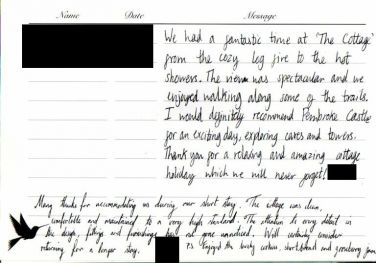 Name Date Message
We had a fantastic time at 'The Cottage'
from the cozy log fire to the hot
showers. The view was spectacular and we
enjoyed walking along some of the trails.
I would definitely recommend Pembroke Castle
for an exciting day, exploring caves and towers.
Thank you for a relaxing and amazing cottage
holiday which we will never forget!
Many thanks for accommodating us during our short stay. The cottage was clean,
comfortable and maintained to a very high standard. The attention to every detail in
the design, fittings and furnishings has not gone unnoticed. Will certainly consider
returning for a longer stay. Enjoyed the shortbread and